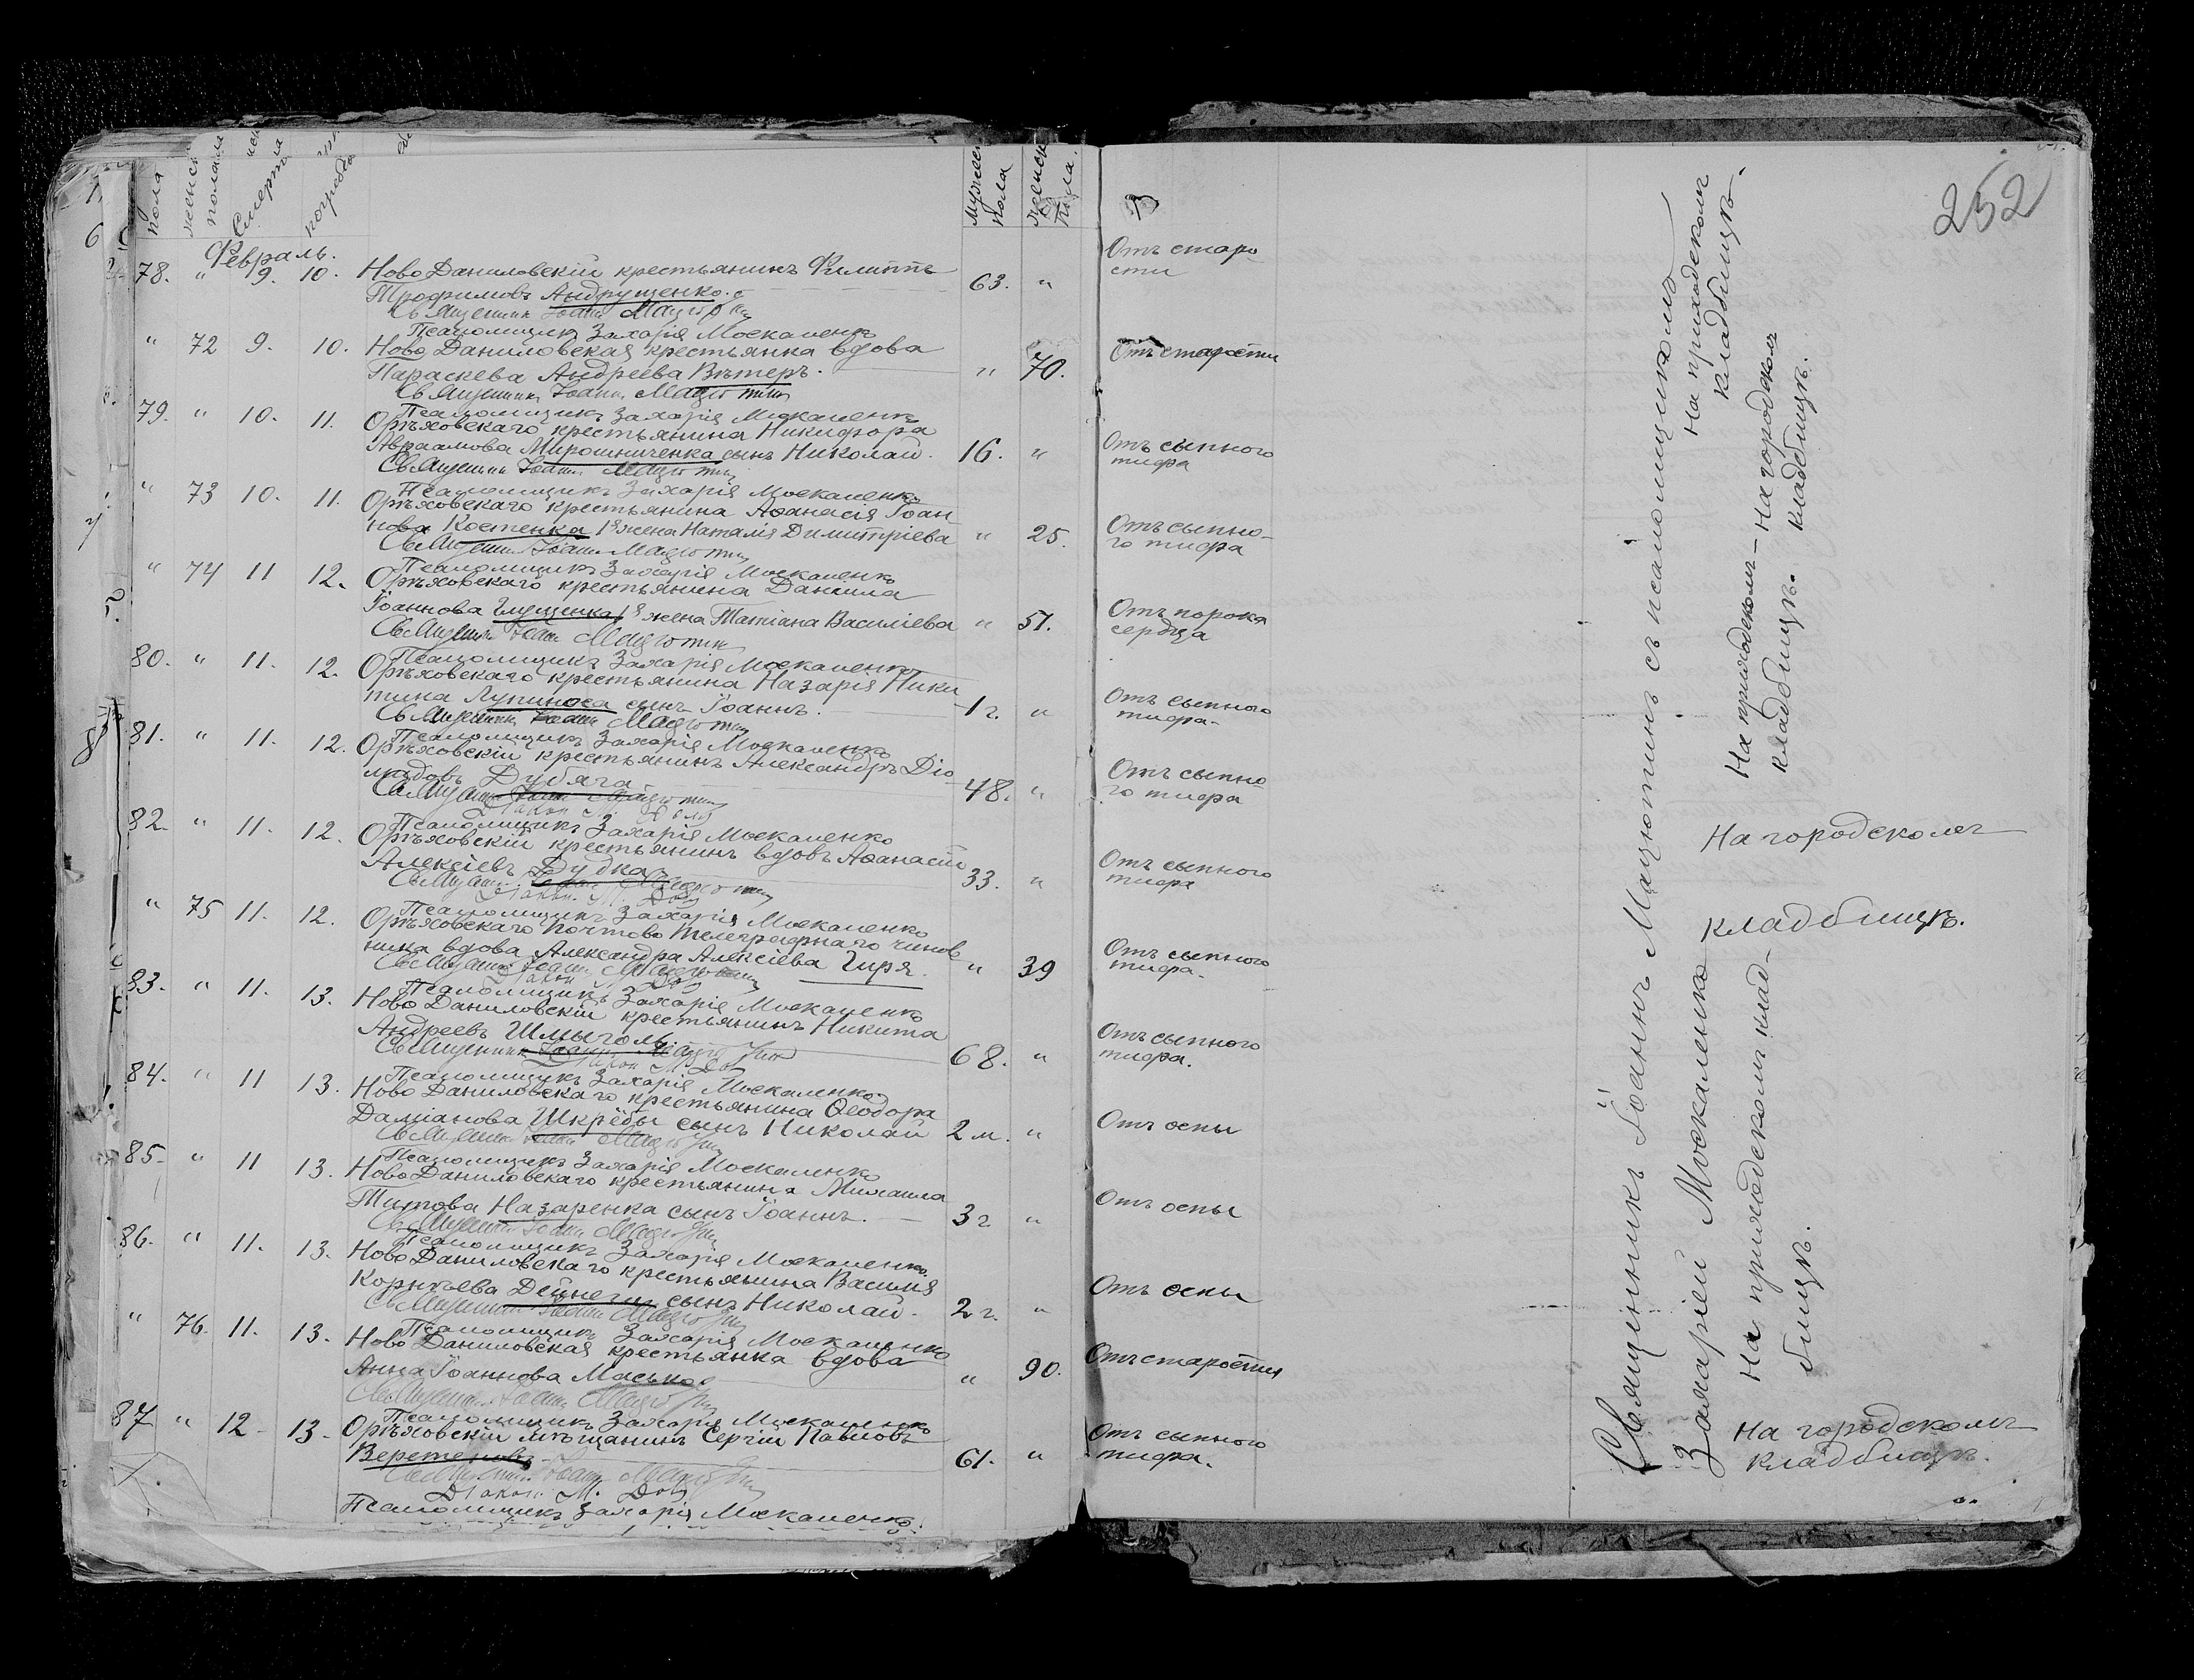 252
пола
женск
полам
Смерт
погреб
мужеск
пола
женск
пола.
Февраль.
78. " 9. 10. Ново Даниловскій крестьянинъ Филиппъ
Трофимовъ Андрущенко. 63. " Отъ старо
сти
Священникъ Іоаннъ Мацютинъ
Псаломщикъ Захарія Москаленко
" 72 9. 10. Ново Даниловская крестьянка вдова
Параскева Андреева Вѣтеръ. " 70. Отъ старости
Священникъ Іоаннъ Мацютинъ
Псаломщикъ Захарія Москаленко
79. " 10. 11. Орѣховскаго крестьянина Никифора
Авраамова Мирошниченка сынъ Николай. 16. " Отъ сыпного
тифа
Священникъ Іоаннъ Мацютинъ
Псаломщикъ Захарія Москаленко
" 73 10. 11. Орѣховскаго крестьянина Аѳанасія Іоан
нова Костенка 1я жена Наталія Димитріева " 25. Отъ сыпно-
го тифа
Священникъ Іоаннъ Мацютинъ
Псаломщикъ Захарія Москаленко
" 74 11 12. Орѣховскаго крестьянина Даніила
Іоаннова Глущенка 1я жена Татіана Василіева " 51. Отъ порока
сердца
Священникъ Іоаннъ Мацютинъ
Псаломщикъ Захарія Москаленко
80. " 11. 12. Орѣховскаго крестьянина Назарія Ники
тина Лупиноса сынъ Іоаннъ. 1 г. " Отъ сыпного
тифа.
Священникъ Іоаннъ Мацютинъ
Псаломщикъ Захарія Москаленко
81. " 11. 12. Орѣховскій крестьянинъ Александръ Діо
мидовъ Дубяга 48. " Отъ сыпно
го тифа
Священникъ Іоаннъ Мацютинъ
Діаконъ
Псаломщикъ Захарія Москаленко
82. " 11. 12. Орѣховскій крестьянинъ вдовъ Аѳанасій
Алексіевъ Дудка 33. " Отъ сыпного
тифа
Священникъ Іоаннъ Мацютинъ
Діаконъ М.
Псаломщикъ Захарія Москаленко
" 75 11. 12. Орѣховскаго почтово телеграфнаго чинов
ника вдова Александра Алексіева Гиря. " 39 Отъ сыпного
тифа.
Священникъ Іоаннъ Мацютинъ
Діаконъ
Псаломщикъ Захарія Москаленко
83. " 11. 13. Ново Даниловскій крестьянинъ Никита
Андреевъ Шмыголь. 68. " Отъ сыпного
тифа.
Священникъ Іоаннъ Мацютинъ
Діаконъ М.
Псаломщикъ Захарія Москаленко
84. " 11 13. Ново Даниловскаго крестьянина Ѳеодора
Даміанова Шкрёбы сынъ Николай 2 м. " Отъ оспы
Священникъ Іоаннъ Мацютинъ
Псаломщикъ Захарія Москаленко
85. " 11 13. Ново Даниловскаго крестьянина Михаила
Титова Назаренка сынъ Іоаннъ. 3 г " Отъ оспы
Священникъ Іоаннъ Мацютинъ
Псаломщикъ Захарія Москаленко
86. " 11. 13. Ново Даниловскаго крестьянина Василія
Корнѣева Дейнеги сынъ Николай. 2 г. " Отъ оспы
Священникъ Іоаннъ Мацютинъ
Псаломщикъ Захарія Москаленко
" 76. 11. 13. Ново Даниловская крестьянка вдова
Анна Іоаннова Масько. " 90. Отъ старости
Священникъ Іоаннъ Мацютинъ
Псаломщикъ Захарія Москаленко
87 " 12 13. Орѣховскій мѣщанинъ Сергій Павловъ
Веретеновъ 61. " Отъ сыпного
тифа.
Священникъ Іоаннъ Мацютинъ
Діаконъ М.
Псаломщикъ Захарія Москаленко.
Священникъ Іоаннъ Мацютинъ съ псаломщикомъ
Захаріей Москаленко
На приходскомъ
кладбищѣ.
На городскомъ
кладбищѣ.
На приходскомъ
кладбищѣ.
На городскомъ
кладбищѣ.
На приходскомъ клад-
бищѣ.
На городскомъ
кладбищѣ.